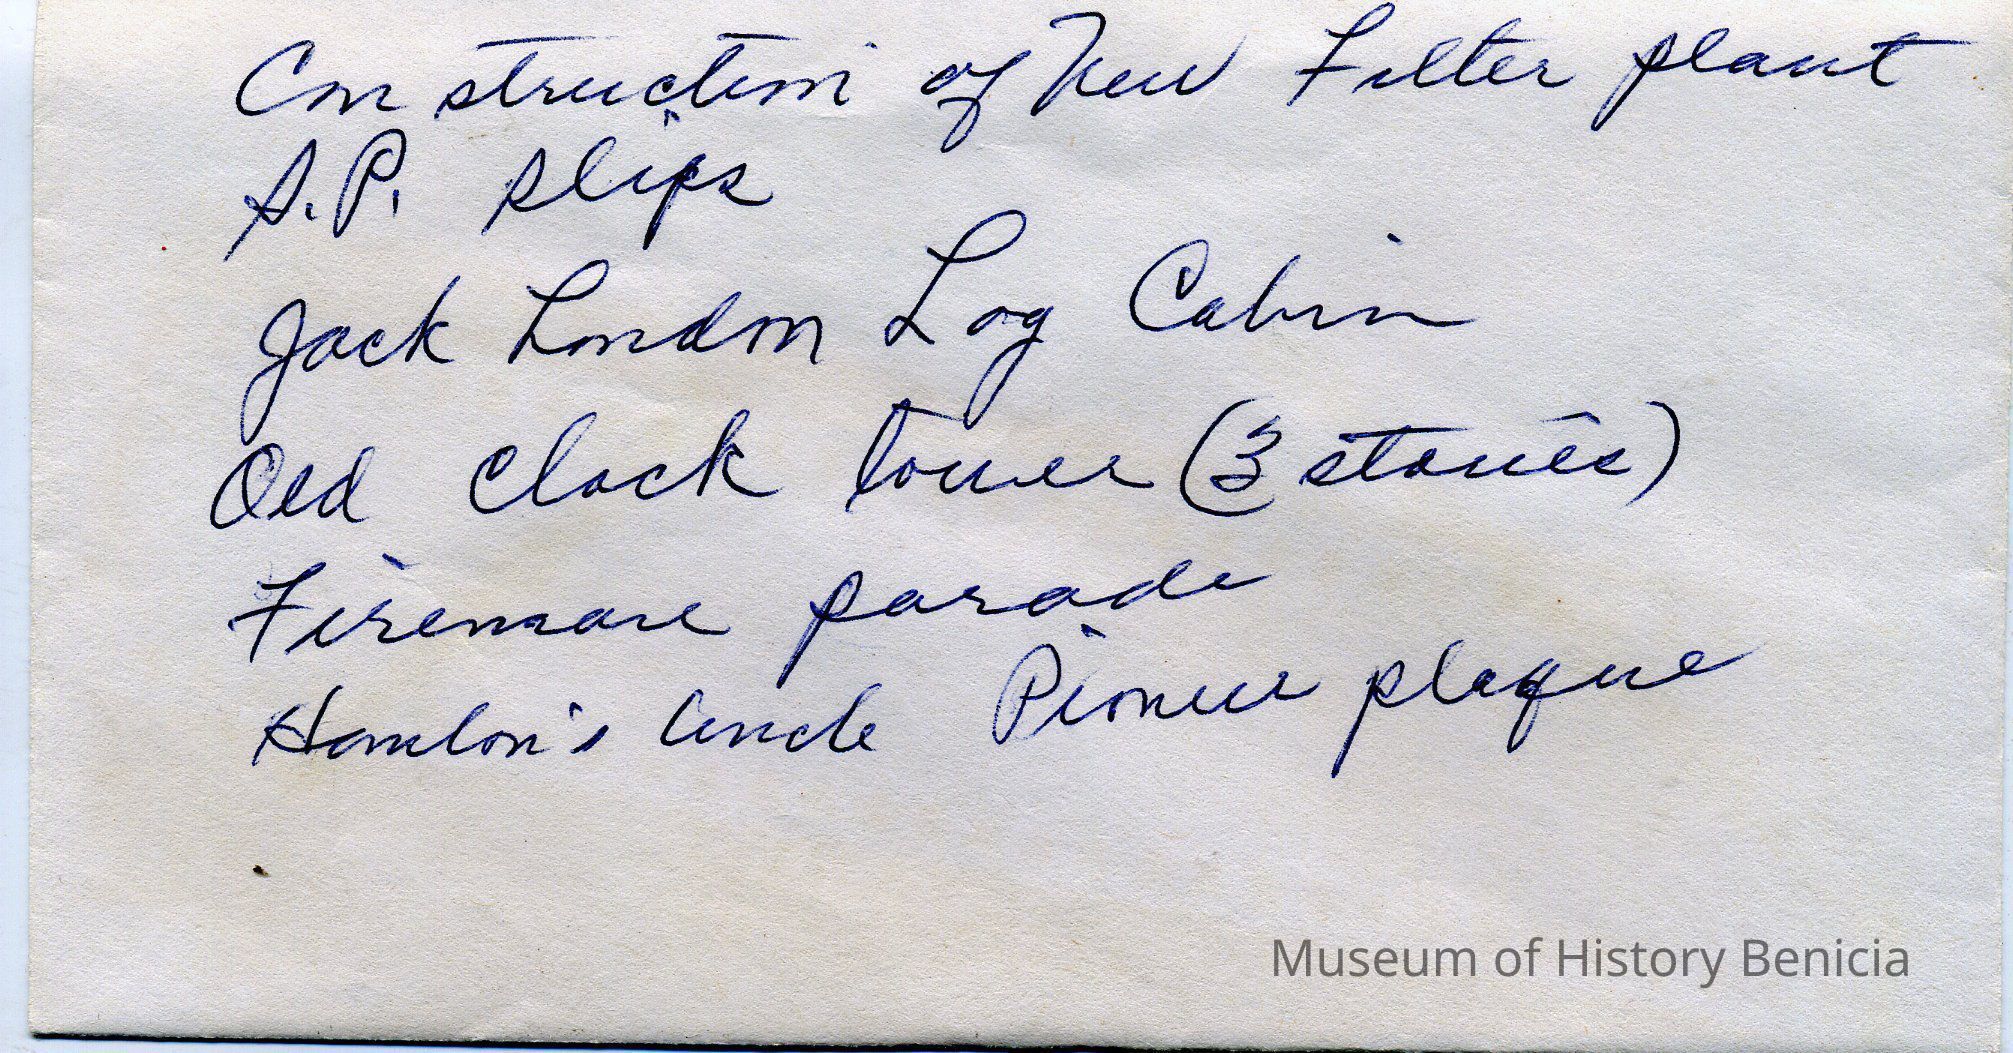 Construction of New Filter plant
S.P. slips
Jack London Log Cabin
Old Clock tower (3 stories)
Firemans parade
Hamlon's Uncle Pioneer plaque
Museum of History Benicia